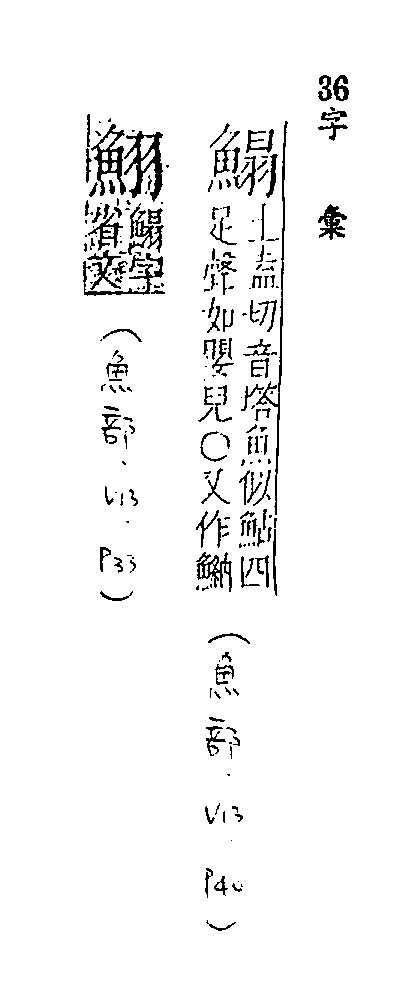 36字 彙
鰨 土盍切音塔魚似鮎四
足聲如嬰兒○又作魶
(魚部.V13.P40)
𩶅 鰨字
省文
(魚部.V13.P33)